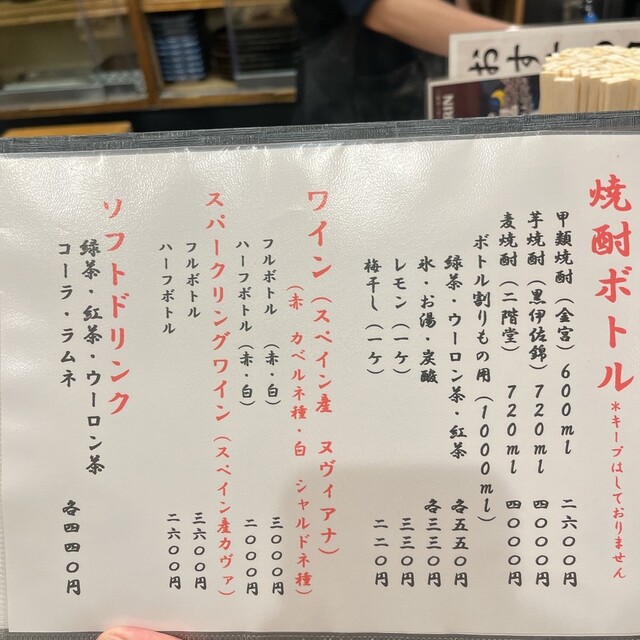 おす
焼酎ボトル ＊キープはしておりません
甲類焼酎（金宮）600ml 二六００円
芋焼酎（黒伊佐錦）720ml 四０００円
麦焼酎（二階堂）720ml 四０００円
ボトル割りもの用（1000ml）
緑茶・ウーロン茶・紅茶 各五五０円
氷・お湯・炭酸 各三三０円
レモン（一ケ） 三三０円
梅干し（一ケ） 二二０円
ワイン（スペイン産 ヌヴィアナ）
（赤 カベルネ種・白 シャルドネ種）
フルボトル（赤・白） 三０００円
ハーフボトル（赤・白） 二０００円
スパークリングワイン（スペイン産カヴァ）
フルボトル 三六００円
ハーフボトル 二六００円
ソフトドリンク
緑茶・紅茶・ウーロン茶 各四四０円
コーラ・ラムネ